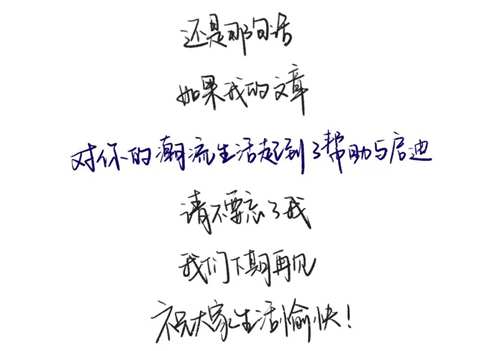 还是那句话
如果我的文章
对你的潮流生活起到了帮助与启迪
请不要忘了我
我们下期再见
祝大家生活愉快!